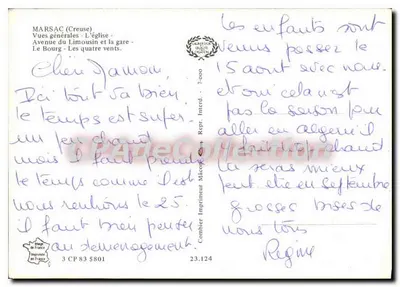 MARSAC (Creuse)
Vues générales - L'église -
Avenue du Limousin et la gare -
Le Bourg - Les quatre vents.
Chère Maman,
Ici tout va bien,
le temps est super-
un peu chaud
mais il faut prendre
le temps comme il est
nous rentrons le 25.
il faut bien penser
au demenagement.
3 CP 83 5801
23.124
Combier Imprimeur Mâcon
Repr. Interd.
Les enfants sont
venus passer le
15 aout avec nous.
et oui cela n'est
pas la saison pour
aller en algerie il
fait trop chaud
tu seras mieux
peut etre en Septembre
grosses bises de
nous tous
Regine
CPAphileCollection.com